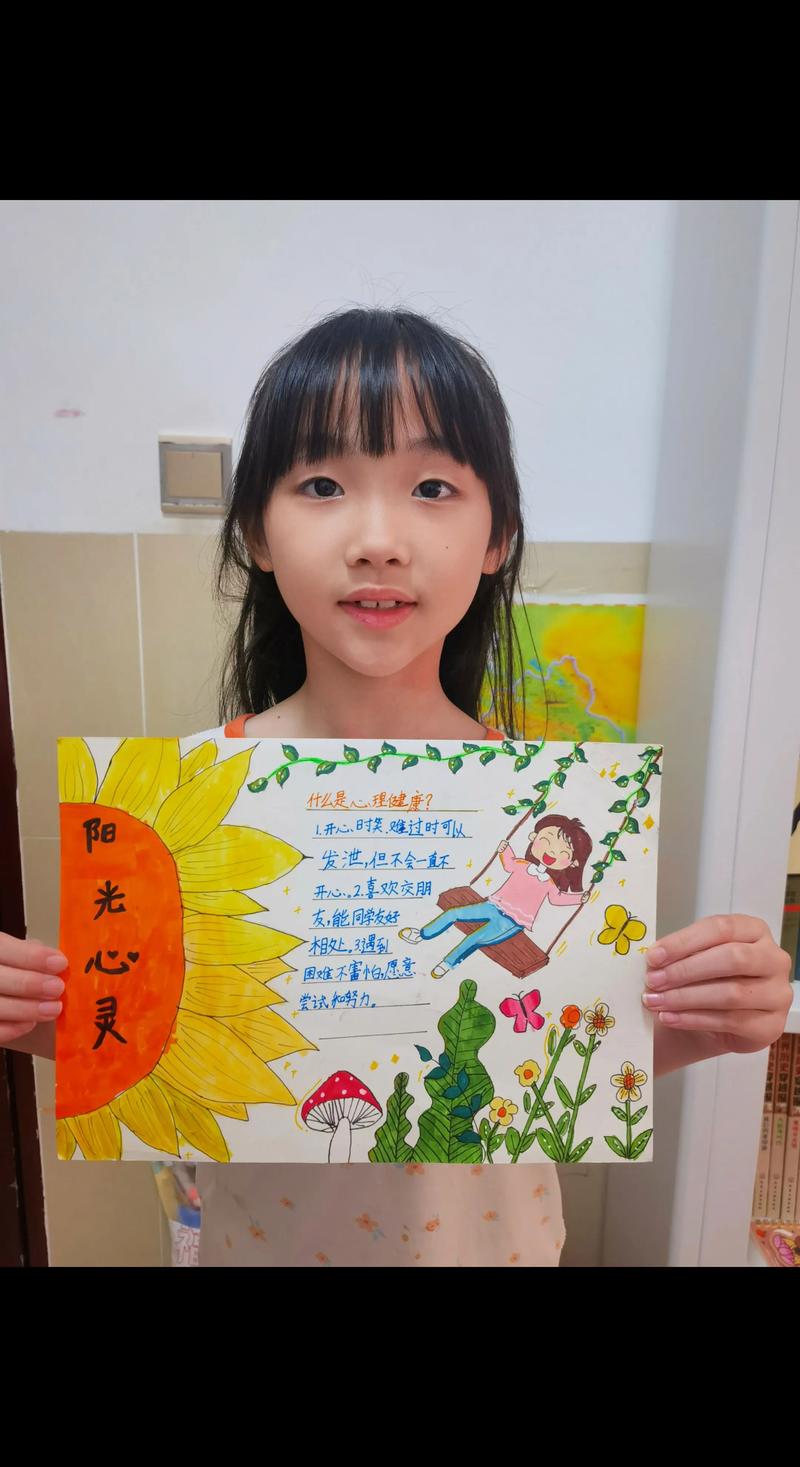 阳光心灵
什么是心理健康？
1.开心时笑,难过时可以
发泄,但不会一直不
开心。2.喜欢交朋
友,能同学友好
相处。3.遇到
困难不害怕,愿意
尝试和努力。
福